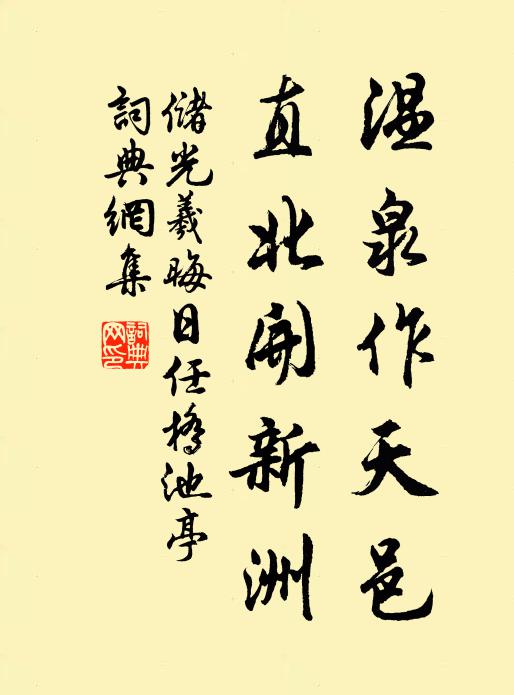 温泉作天邑
直北開新洲
儲光羲晦日任橋池亭
詞典網集
詞典網印